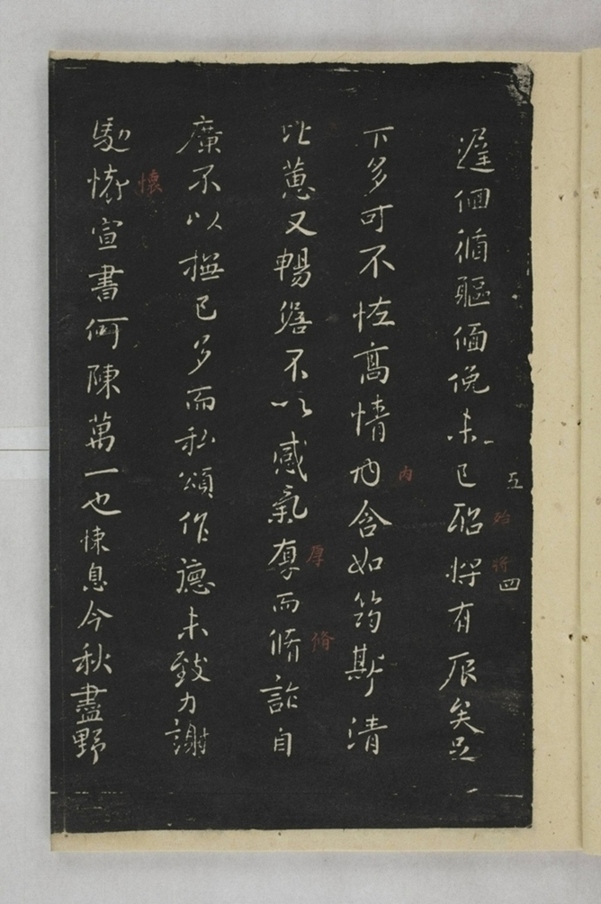 遲佪循軀偭俛未已殆將有辰矣足
五
殆
將
四
下多可不恠高情內含如筠斯清
內
比蕙又暢不以感氣厚而脩自
厚
脩
廉不以已多而私頌作德未致力謝
懷
馳懷宣書何陳萬一也悚息今秋盡野